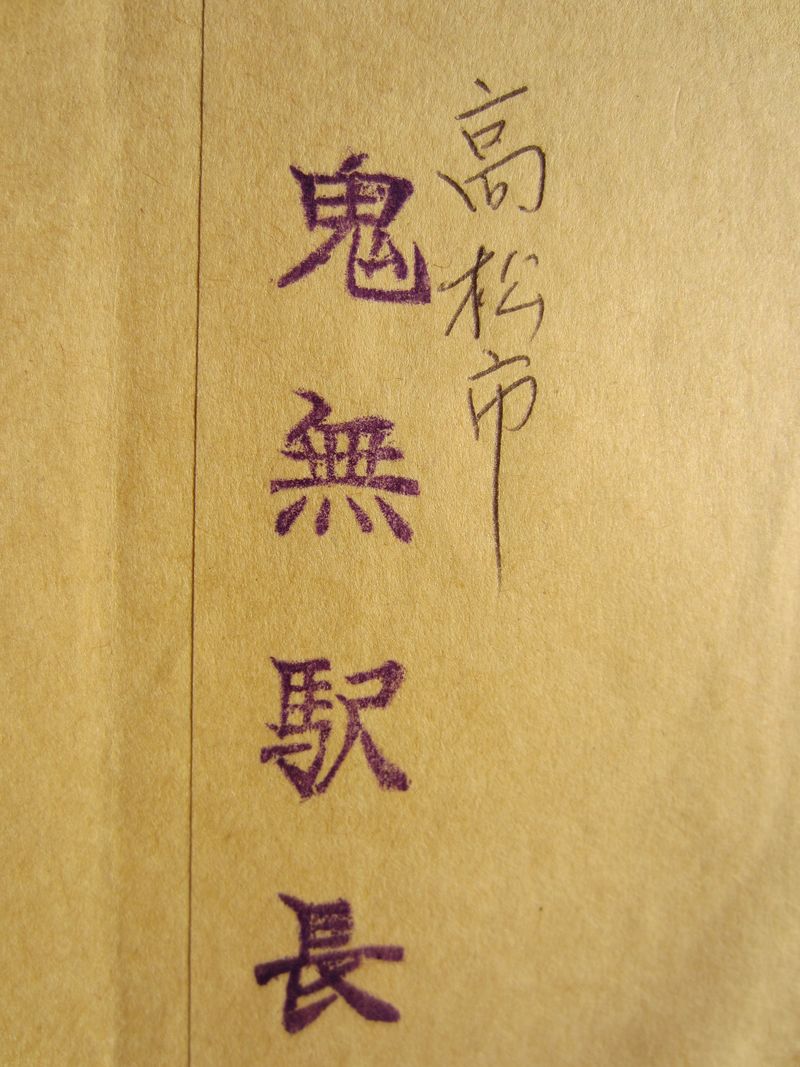 高松市
鬼無駅長